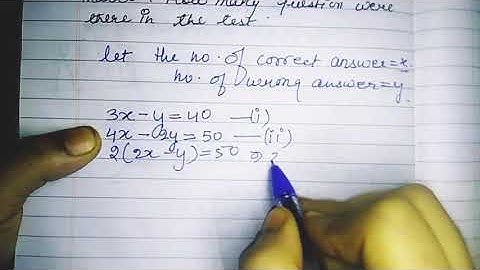 How many question were
there in the test.
let the no. of correct answer = x
no. of wrong answer = y
3x - y = 40 —(i)
4x - 2y = 50 —(ii)
2(2x - y) = 50